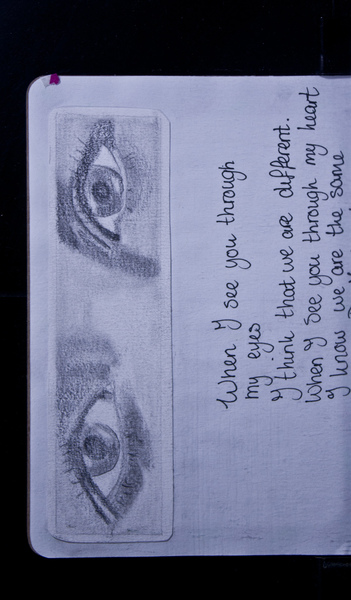 When I see you through
my eyes
I think that we are different.
When I see you through my heart
I know we are the same